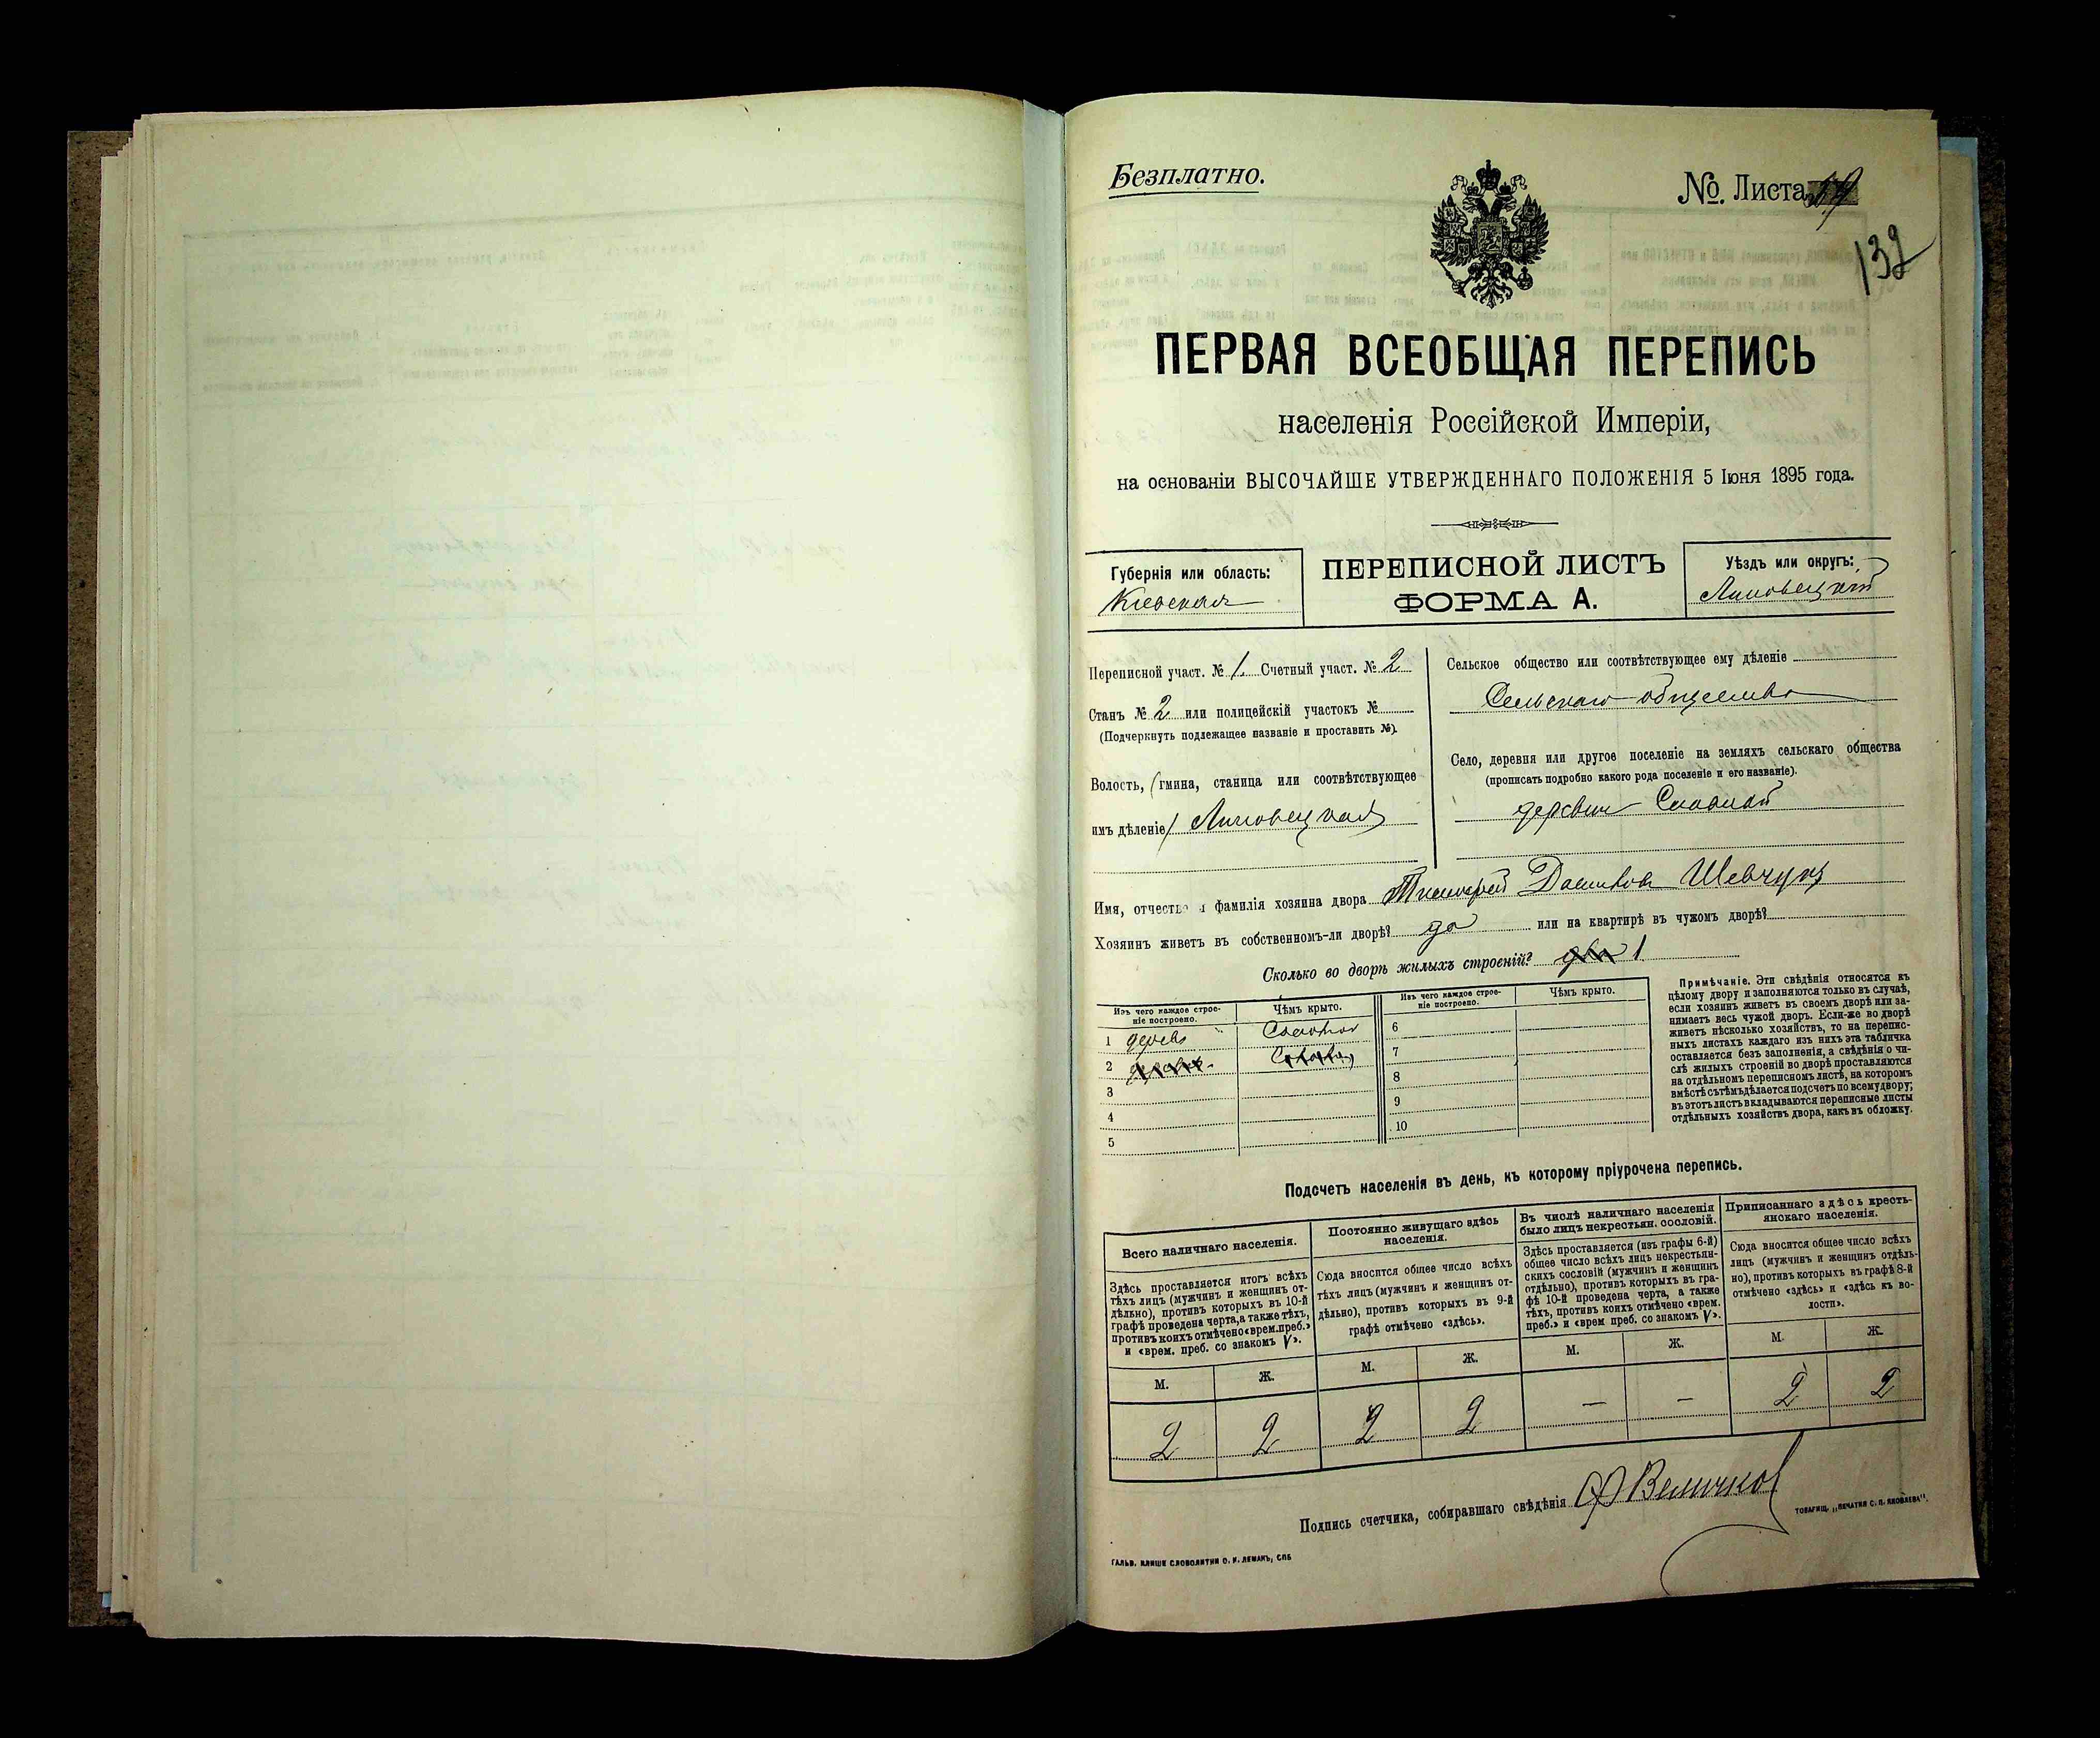 Безплатно.
№. Листа
132
ПЕРВАЯ ВСЕОБЩАЯ ПЕРЕПИСЬ
населенія Россійской Имперіи,
на основаніи ВЫСОЧАЙШЕ УТВЕРЖДЕННАГО ПОЛОЖЕНІЯ 5 Іюня 1895 года.
Губернія или область:
Кіевская
ПЕРЕПИСНОЙ ЛИСТЪ
ФОРМА А.
Уѣздъ или округъ:
Липовецкій
Переписной участ. № 1 Счетный участ. № 2
Станъ № 2 или полицейскій участокъ №
(Подчеркнуть подлежащее названіе и проставить №).
Волость, (гмина, станица или соотвѣтствующее
имъ дѣленіе) Липовецкая
Сельское общество или соотвѣтствующее ему дѣленіе
Сельскаго общества
Село, деревня или другое поселеніе на земляхъ сельскаго общества
(прописать подробно какого рода поселеніе и его названіе).
деревни Славной
Имя, отчество и фамилія хозяина двора Тимофей Шевчукъ
Хозяинъ живетъ въ собственномъ-ли дворѣ? да или на квартирѣ въ чужомъ дворѣ?
Сколько во дворѣ жилыхъ строеній? два 1
Изъ чего каждое строе-
ніе построено.
Чѣмъ крыто.
1 дерева Соломой
2
3
4
5
Изъ чего каждое строе-
ніе построено.
Чѣмъ крыто.
6
7
8
9
10
Примѣчаніе. Эти свѣдѣнія относятся къ
цѣлому двору и заполняются только въ случаѣ,
если хозяинъ живетъ въ своемъ дворѣ или за-
нимаетъ весь чужой дворъ. Если-же во дворѣ
живетъ нѣсколько хозяйствъ, то на перепис-
ныхъ листахъ каждаго изъ нихъ эта табличка
оставляется безъ заполненія, а свѣдѣнія о чи-
слѣ жилыхъ строеній во дворѣ проставляются
на отдѣльномъ переписномъ листѣ, на которомъ
вмѣстѣ съ тѣмъ дѣлается подсчетъ по всему двору;
въ этотъ листъ вкладываются переписные листы
отдѣльныхъ хозяйствъ двора, какъ въ обложку.
Подсчетъ населенія въ день, къ которому пріурочена перепись.
Всего наличнаго населенія.
Здѣсь проставляется итогъ всѣхъ
тѣхъ лицъ (мужчинъ и женщинъ от-
дѣльно), противъ которыхъ въ 10-й
графѣ проведена черта, а также тѣхъ,
противъ коихъ отмѣчено «врем. преб.»
и «врем. преб. со знакомъ V».
М. Ж.
2 2
Постоянно живущаго здѣсь
населенія.
Сюда вносится общее число всѣхъ
тѣхъ лицъ (мужчинъ и женщинъ от-
дѣльно), противъ которыхъ въ 9-й
графѣ отмѣчено «здѣсь».
М. Ж.
2 2
Въ числѣ наличнаго населенія
было лицъ некрестьян. сословій.
Здѣсь проставляется (изъ графы 6-й)
общее число всѣхъ лицъ некрестьян-
скихъ сословій (мужчинъ и женщинъ
отдѣльно), противъ которыхъ въ гра-
фѣ 10-й проведена черта, а также
тѣхъ, противъ коихъ отмѣчено «врем.
преб.» и «врем преб. со знакомъ V».
М. Ж.
— —
Приписаннаго здѣсь кресть-
янскаго населенія.
Сюда вносится общее число всѣхъ
лицъ (мужчинъ и женщинъ отдѣль-
но), противъ которыхъ въ графѣ 8-й
отмѣчено «здѣсь» и «здѣсь въ во-
лости».
М. Ж.
2 2
Подпись счетчика, собиравшаго свѣдѣнія Величков
ГАЛЬВ. КЛИШЕ СЛОВОЛИТНИ О. И. ЛЕМАНЪ, СПБ
ТОВАРИЩ. „ПЕЧАТНЯ С. П. ЯКОВЛЕВА".